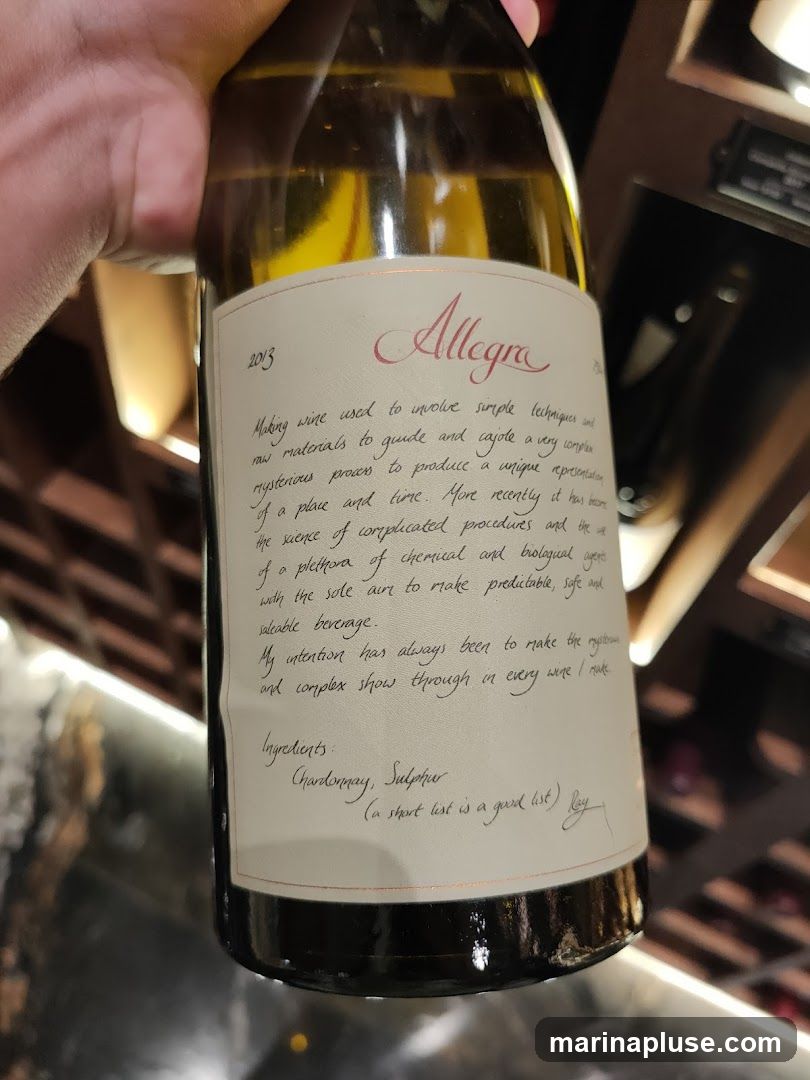 2013
Allegra
Making wine used to involve simple techniques and
raw materials to guide and cajole a very complex
mysterious process to produce a unique representation
of a place and time. More recently it has become
the science of complicated procedures and the use
of a plethora of chemical and biological agents
with the sole aim to make predictable, safe and
saleable beverage.
My intention has always been to make the mysterious
and complex show through in every wine I make.
Ingredients:
Chardonnay, Sulphur
(a short list is a good list) Ray
marinapluse.com